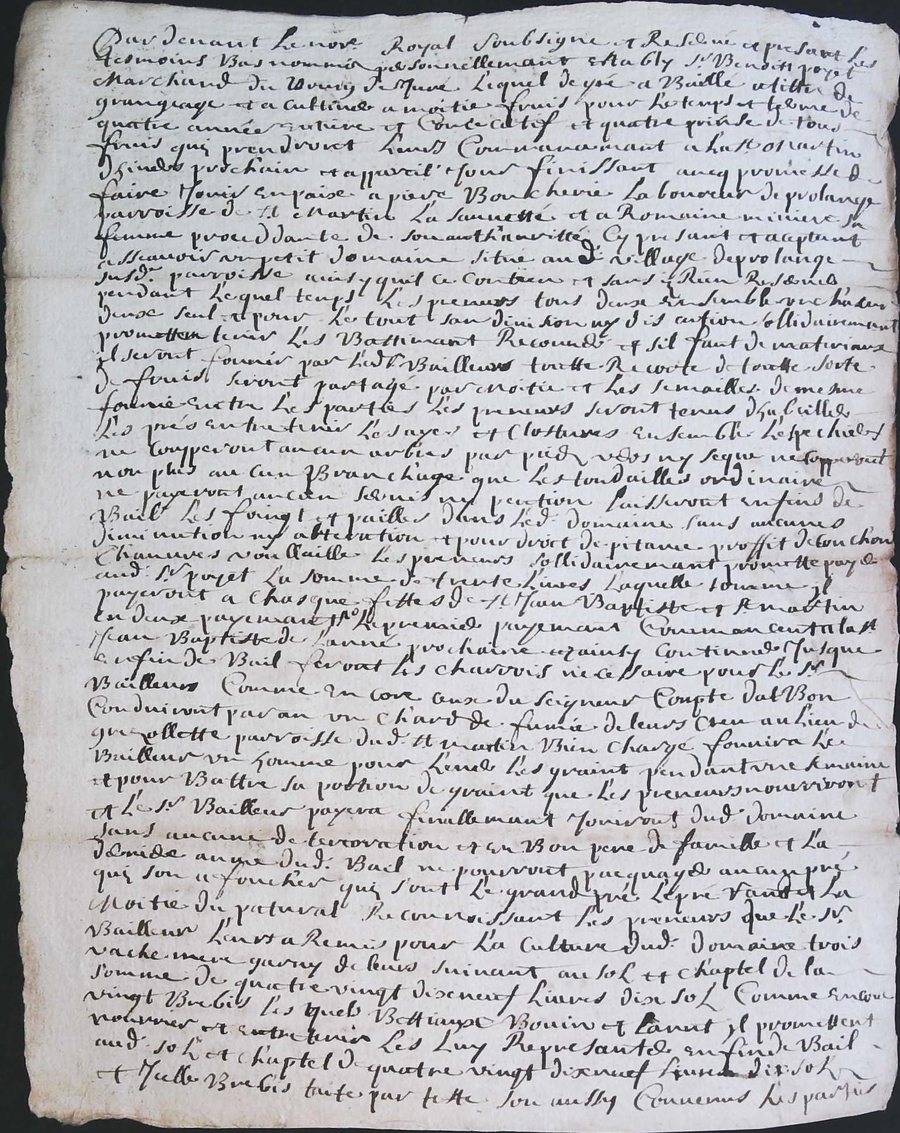 Par devant Le nore Royal Soubsigné et Reservé et presant Les
tesmoins Bas nommés personnellemant Estably Sr Benoist poyet
Marchand du Bourg de Juré Lequel de gré a Baillé a tiltre de
grangeage et a cultine a moitié fruis pour Le temps et terme de
quatre année entiere et Consecative et quatre prinse de tous
fruis quy prendront Leurs Commancemant a La st Martin
dhiver prochain et a pareil Jour finissant avecq promesse de
faire Jouir En paise a piere Boucherie Laboureur de prolange
parroisse de st Martin La Sauvetté et a Romaine miniere Sa
femme proceddante de son authauritté Cy presant et aceptant
asseavoir un petit domaine situé aud. village de prolange
susd. parroisse ainsy quil ce Contien et sans y Rien Reserver
pendant Lequel temps Les preneurs tous deux Ensemble un chacun
deux seul et pour Le tout san division ny discution sollidairemant
promettem tenir Les Battimant Recouvers et sil faut de materiaux
Il seront fournir par Led. Bailleur toutte Recorte de toutte sorte
de fruis seront partage par Moitié et Les semailles de mesme
fournie Entre Les parties Les preneurs seront tenus
Les prés Entretenir Les ayes et Clostures Ensemble Les pechieres
ne Couperont aucun arbres par pied vers ny seque ne Copperont
non plus aucun Branchage que Les tondailles ordinaire
ne payeront aucun servis ny pention Laisseront En fins de
Bail Les foingt et pailles dans Led. Domaine sans aucunes
diminution ny alteration et pour droct de pitance proffit de Couchon
Chanevres voullaille Les preneurs sollidairemant promette payer
aud. Sr poyet La somme de trente Livres Laquelle somme Il
payeront a Chasque fettes de st Jean Baptiste et st martin
En deux payemant Le premier payemant Commancent a La st
Jean Baptiste de Lanné prochaine et ainsy Continuer Jusque
En fin de Bail feront Les charrois necessaire pour Le Sr
Bailleur Comme En core ceux du seigneur Compte dal Bon
Conduiront par an un Chard de fumié de leurs Creu au Lieu de
grezollette parroisse dud. st martin Bien Chargé fournira Le
Bailleur un homme pour Lever Les graint pendant une semaine
et pour Battre sa portion de graint que Les preneurs nourriront
et Le Sr Bailleur payera finallemant Jouiront dud. domaine
sans aucune deterioration et En Bon pere de famille et La
derniere année dud. Bail ne pourront pacquager aucun pré
quy son a foucher quy sont Le grand pré Le pré et La
Moitié du patural Reconnoissant Les preneurs que Le Sr
Bailleur Leurs a Remis pour La Culture dud. Domaine trois
vache mere garny de leurs suivant au sol et chaptel de la
somme de quatre vingt dixe neuf Livres dixe sol Comme Encore
vingt Brebis Les quels Bettiaux Bouvin et Lannt Il promettent
nourrir et Entretenir Les Luy Representer En fin de Bail
aud. sol et chaptel de quatre vingt dixe neuf Livres dix sol
et Jcelle Brebis taite par tette son aussy Convenus Les parties